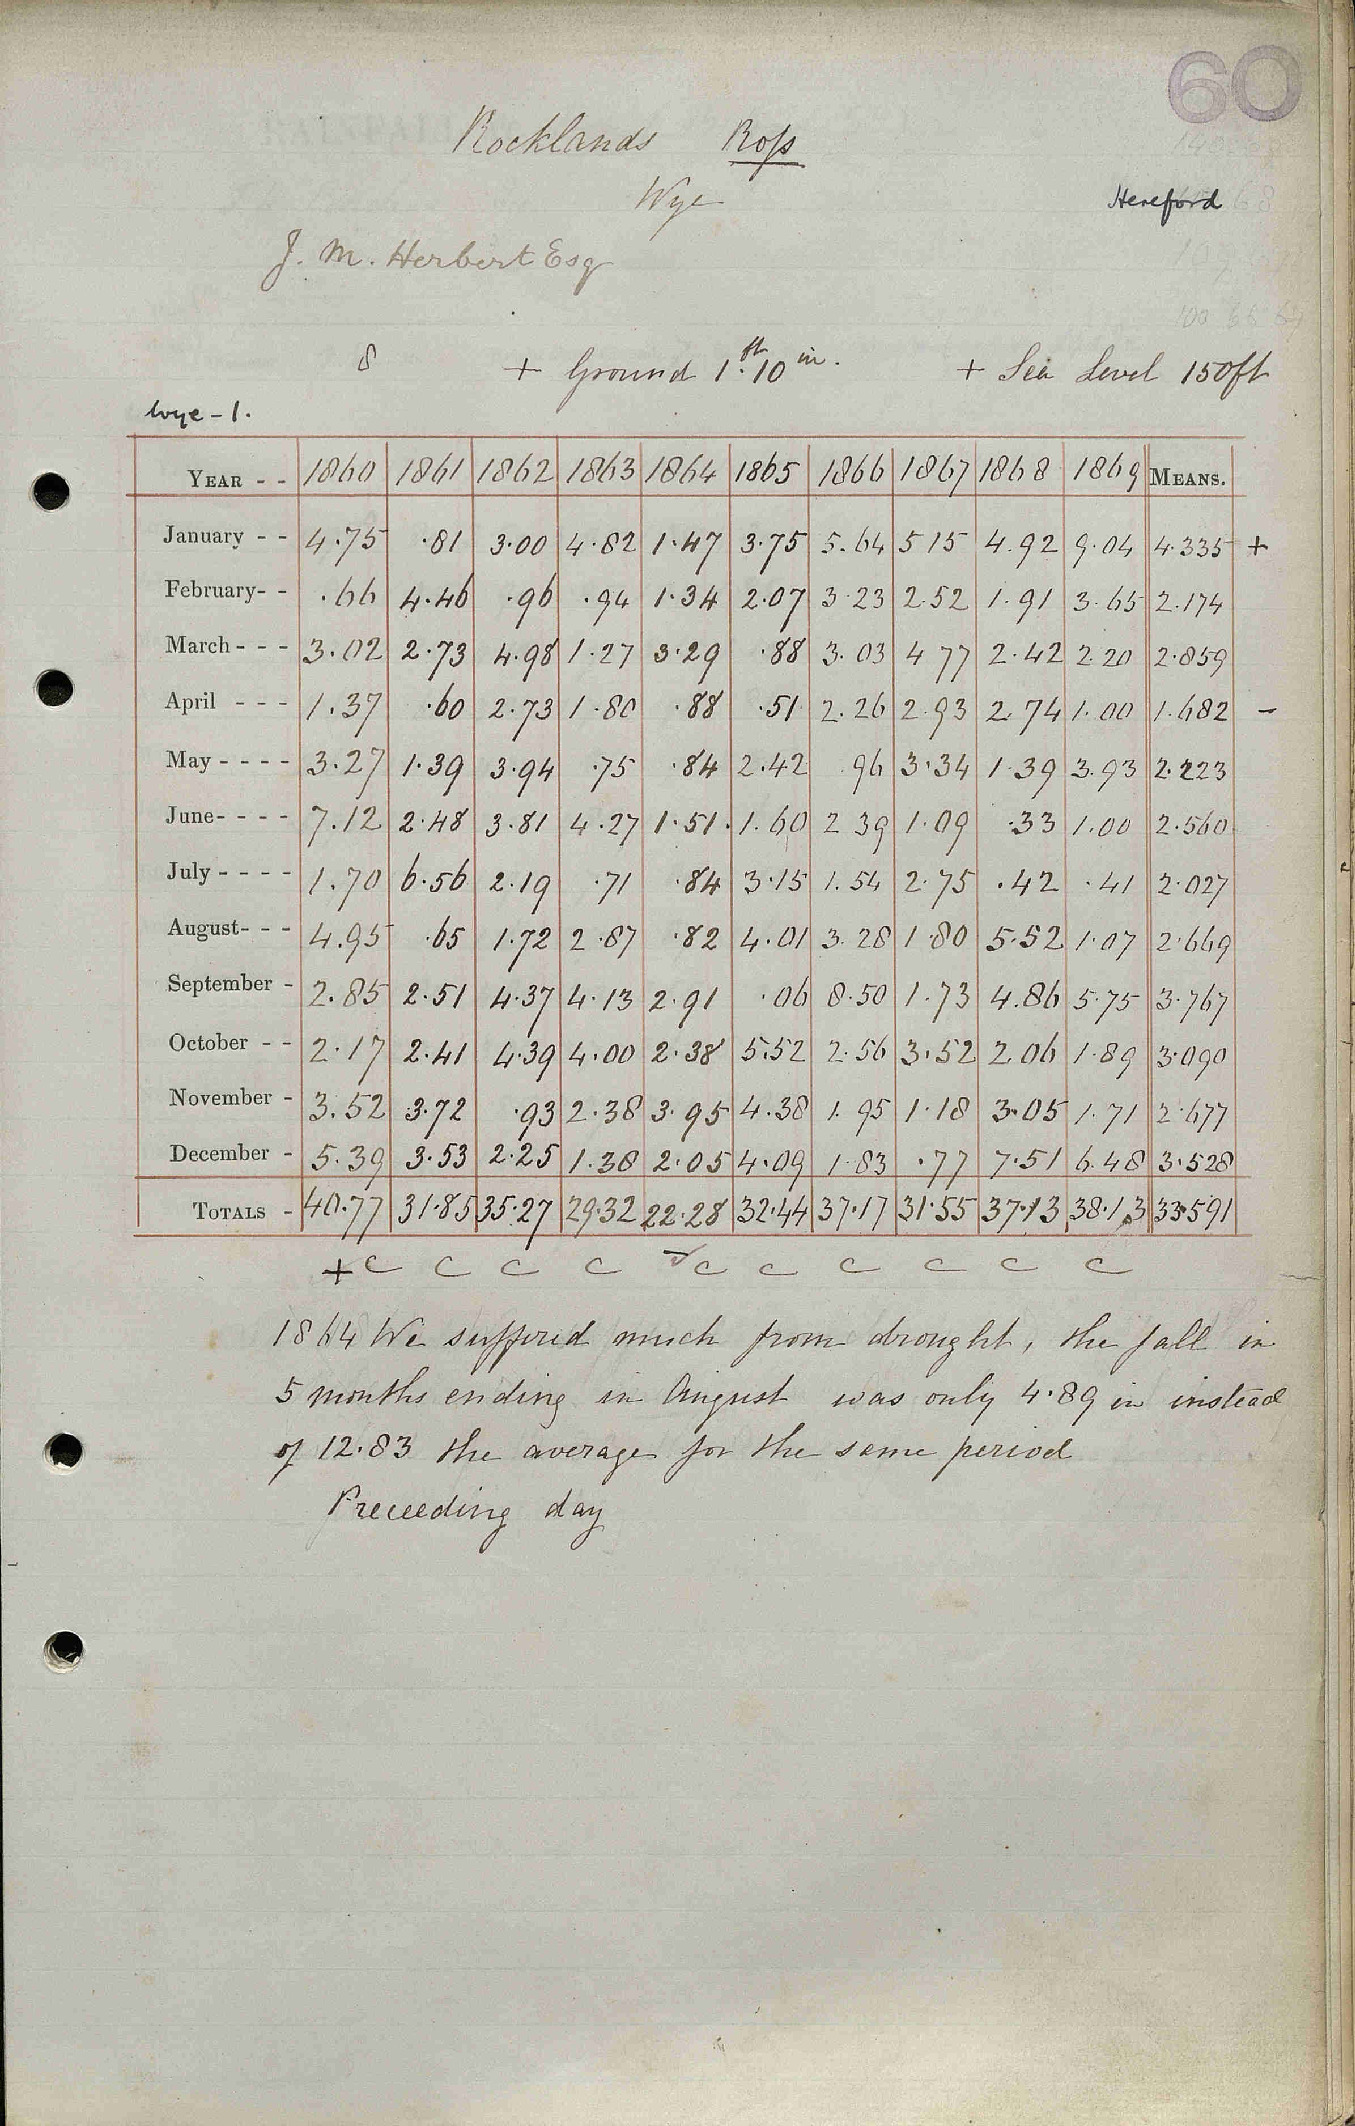 60
Rocklands Ross
Wye
Hereford
J. M. Herbert Esq
8 + Ground 1 ft. 10 in. + Sea Level 150ft
Wye - 1.
YEAR - - 1860 1861 1862 1863 1864 1865 1866 1867 1868 1869 MEANS.
January - - 4.75 .81 3.00 4.82 1.47 3.75 5.64 5 15 4.92 9.04 4.335 +
February- - .66 4.46 .96 .94 1.34 2.07 3 23 2.52 1.91 3.65 2.174
March - - - 3.02 2.73 4.98 1.27 3.29 .88 3.03 4 77 2.42 2 20 2.859
April - - - 1.37 .60 2.73 1.80 .88 .51 2.26 2.93 2.74 1.00 1.682 -
May - - - - 3.27 1.39 3.94 .75 .84 2.42 96 3.34 1.39 3.93 2.223
June- - - - 7.12 2.48 3.81 4.27 1.51. 1.60 2 39 1.09 .33 1.00 2.560
July - - - - 1.70 6.56 2.19 .71 .84 3.15 1.54 2.75 .42 .41 2.027
August- - - 4.95 .65 1.72 2.87 .82 4.01 3.28 1.80 5.52 1.07 2.669
September - 2.85 2.51 4.37 4.13 2.91 .06 8.50 1.73 4.86 5.75 3.767
October - - 2.17 2.41 4.39 4.00 2.38 5.52 2.56 3.52 2.06 1.89 3.090
November - 3.52 3.72 .93 2.38 3.95 4.38 1.95 1.18 3.05 1.71 2.677
December - 5.39 3.53 2.25 1.38 2.05 4.09 1.83 .77 7.51 6.48 3.528
TOTALS - 40.77 31.85 35.27 29.32 22.28 32.44 37.17 31.55 37.13 38.13 33.591
+ c c c c - c c c c c c
1864 We suffered much from drought, the fall in
5 months ending in August was only 4.89 in instead
of 12.83 the average for the same period
Preceeding day